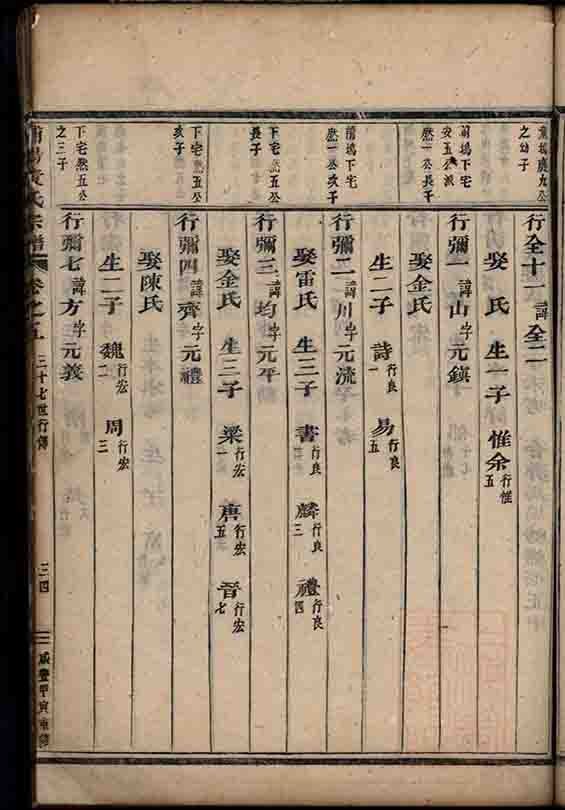 之幼子
行全十一 諱全二
娶 氏 生一子 惟余 行惟五
前塢下宅
安五公派
愿一公長子
行彌一 諱山 字元鎮
娶金氏
生二子 詩 行良一 易 行良五
前塢下宅
愿一公次子
行彌二 諱川 字元流
娶雷氏 生三子 書 行良 麟 行良三 禮 行良四
下宅 五公
長子
行彌三 諱均 字元平
娶金氏 生三子 梁 行宏一 唐 行宏五 晉 行宏七
下宅 五公
次子
行彌四 諱齊 字元禮
娶陳氏
生二子 魏 行宏二 周 行宏三
下宅 五公
之三子
行彌七 諱方 字元義
氏宗譜 卷之五 三十七世行傳 三四 咸豐甲寅重修